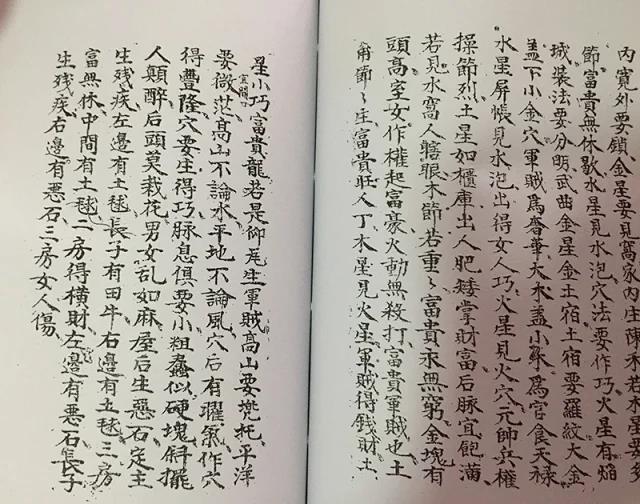 內寬外要鎖金星要見窩家內庄陳禾若木星要多
節富貴無休歇水星見水泡穴法要作巧火星有焰
城裝法要分明武曲金星金土宿土宿要羅紋大金
盖下小金穴軍賊為奢華大水盖小水為官食天祿
水星屏帳見水泡出得女人巧火星見火穴元帥兵權
操節烈土星如櫃庫出人肥矮掌財富后脉宜飽滿
若見水窩人瞎眼木節若重々富貴永無窮金塊有
頭高室女作權起富豪火動無殺打富貴軍賊也土
節々庄富貴旺人丁木星見火星軍賊得錢財土
星小巧富貴龍若是仰生軍賊高山要托平洋
宜闊
要微茫高山不論水平地不論風穴后有曜氣作穴
得豐隆穴要生得巧脉息俱要小粗蠢似硬塊斜擺
人顛醉后頭莫栽花男女乱如麻后生惡石定主
生残疾左邊有土毬長子有田牛右邊有土毬三房
富無休中間有土毬二房得橫財左邊有惡石長子
生残疾右邊有惡石三房女人傷